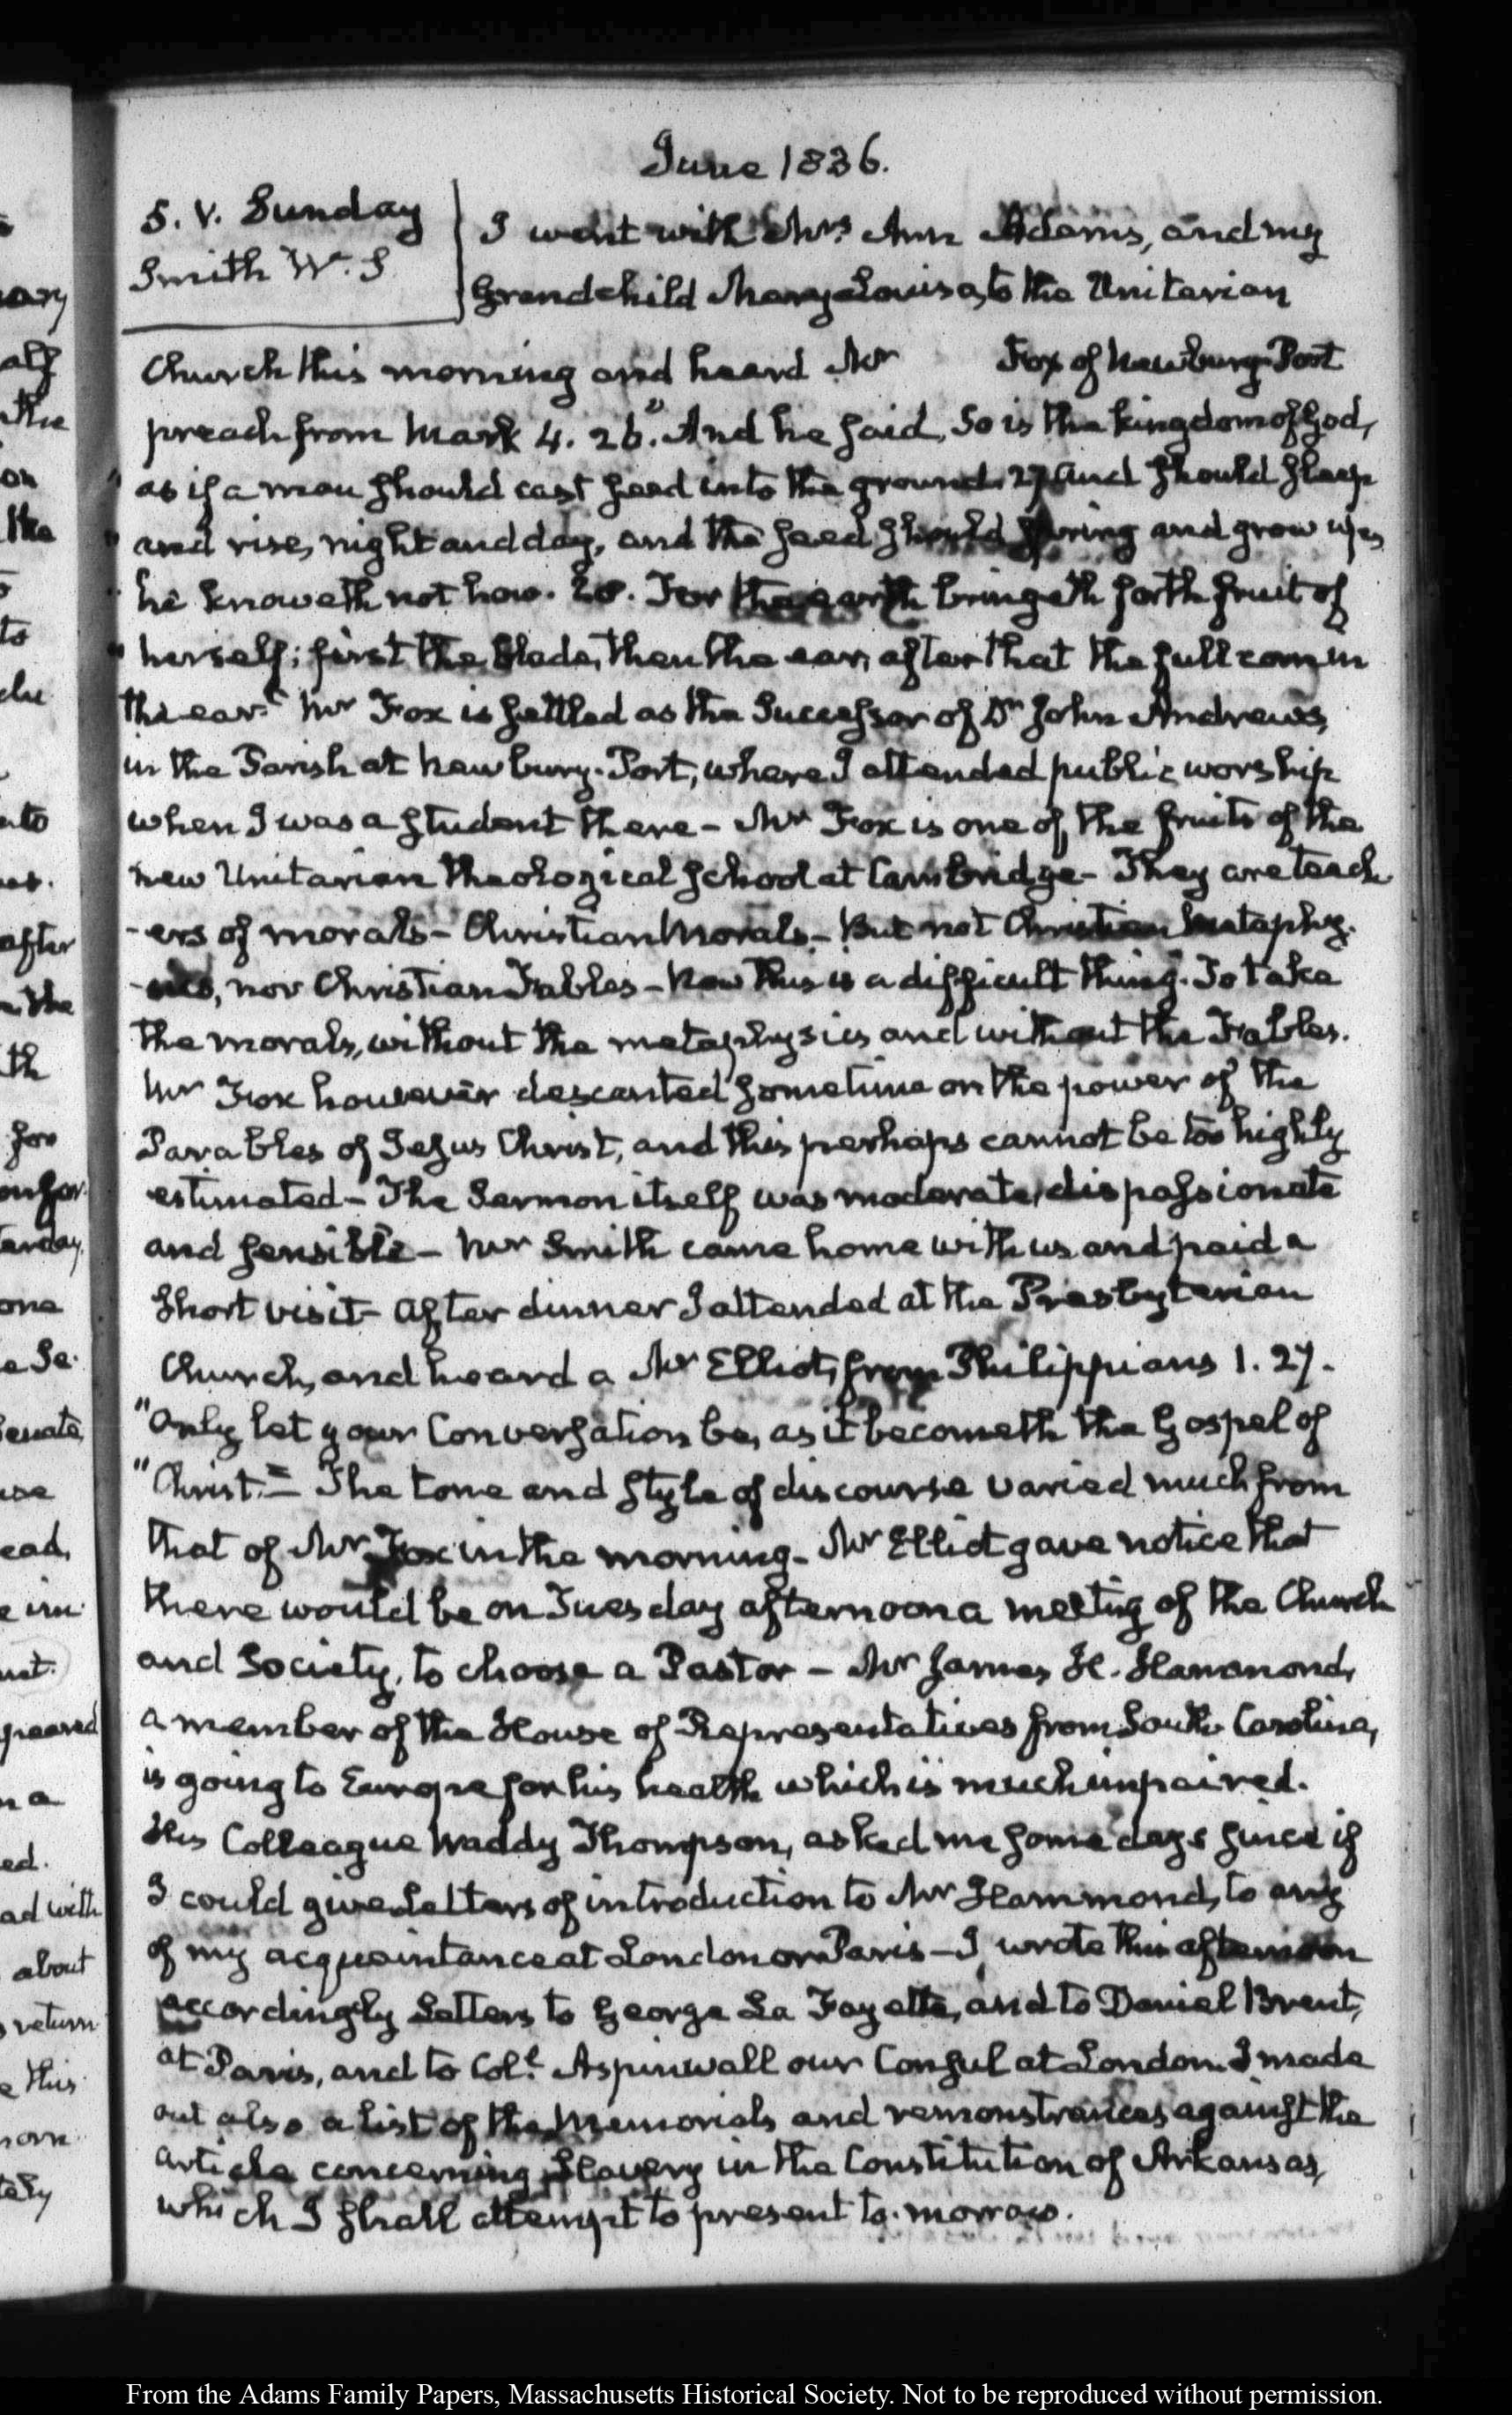 June 1836.
5. V. Sunday
Smith W. S
I went with Mrs. Ann Adams, and my
Grandchild Mary-Louisa, to the Unitarian
Church this morning and heard Mr Fox of Newbury-Port
preach from Mark 4. 26. "And he said, So is the kingdom of God,
" as if a man should cast seed into the ground. 27 and should sleep
" and rise, night and day, and the seed should spring and grow up,
" he knoweth not how. 28. For the earth bringeth forth fruit of
" herself; first the blade, then the ear, after that the full corn in
the ear." Mr Fox is settled as the Successor of Dr John Andrews,
in the Parish at Newbury-Port, where I attended public worship
when I was a student there - Mr Fox is one of the fruits of the
new Unitarian theological school at Cambridge - They are teach
-ers of morals - Christian Morals - But not Christian metaphy-
-sics, nor Christian Fables - Now this is a difficult thing. To take
the morals, without the metaphysics and without the Fables.
Mr Fox however descanted sometime on the power of the
Parables of Jesus Christ, and this perhaps cannot be too highly
estimated - The Sermon itself was moderate, dispassionate
and sensible - Mr Smith came home with us and paid a
short visit - After dinner I attended at the Presbyterian
Church, and heard a Mr Elliot, from Philippians 1. 27.
"Only let your Conversation be, as it becometh the Gospel of
"Christ." - The tone and style of discourse varied much from
that of Mr Fox in the morning - Mr Elliot gave notice that
there would be on Tuesday afternoon a meeting of the Church
and Society, to choose a Pastor - Mr James H. Hammond,
a member of the House of Representatives from South Carolina,
is going to Europe for his health which is much impaired.
His Colleague Waddy Thompson, asked me some days since if
I could give Letters of introduction to Mr Hammond, to any
of my acquaintance at London or Paris - I wrote this afternoon
accordingly Letters to George La Fayette, and to Daniel Brent,
at Paris, and to Col.l Aspinwall our Consul at London. I made
out also a list of the Memorials and remonstrances against the
article concerning Slavery in the Constitution of Arkansas,
which I shall attempt to present to-morrow.
From the Adams Family Papers, Massachusetts Historical Society. Not to be reproduced without permission.